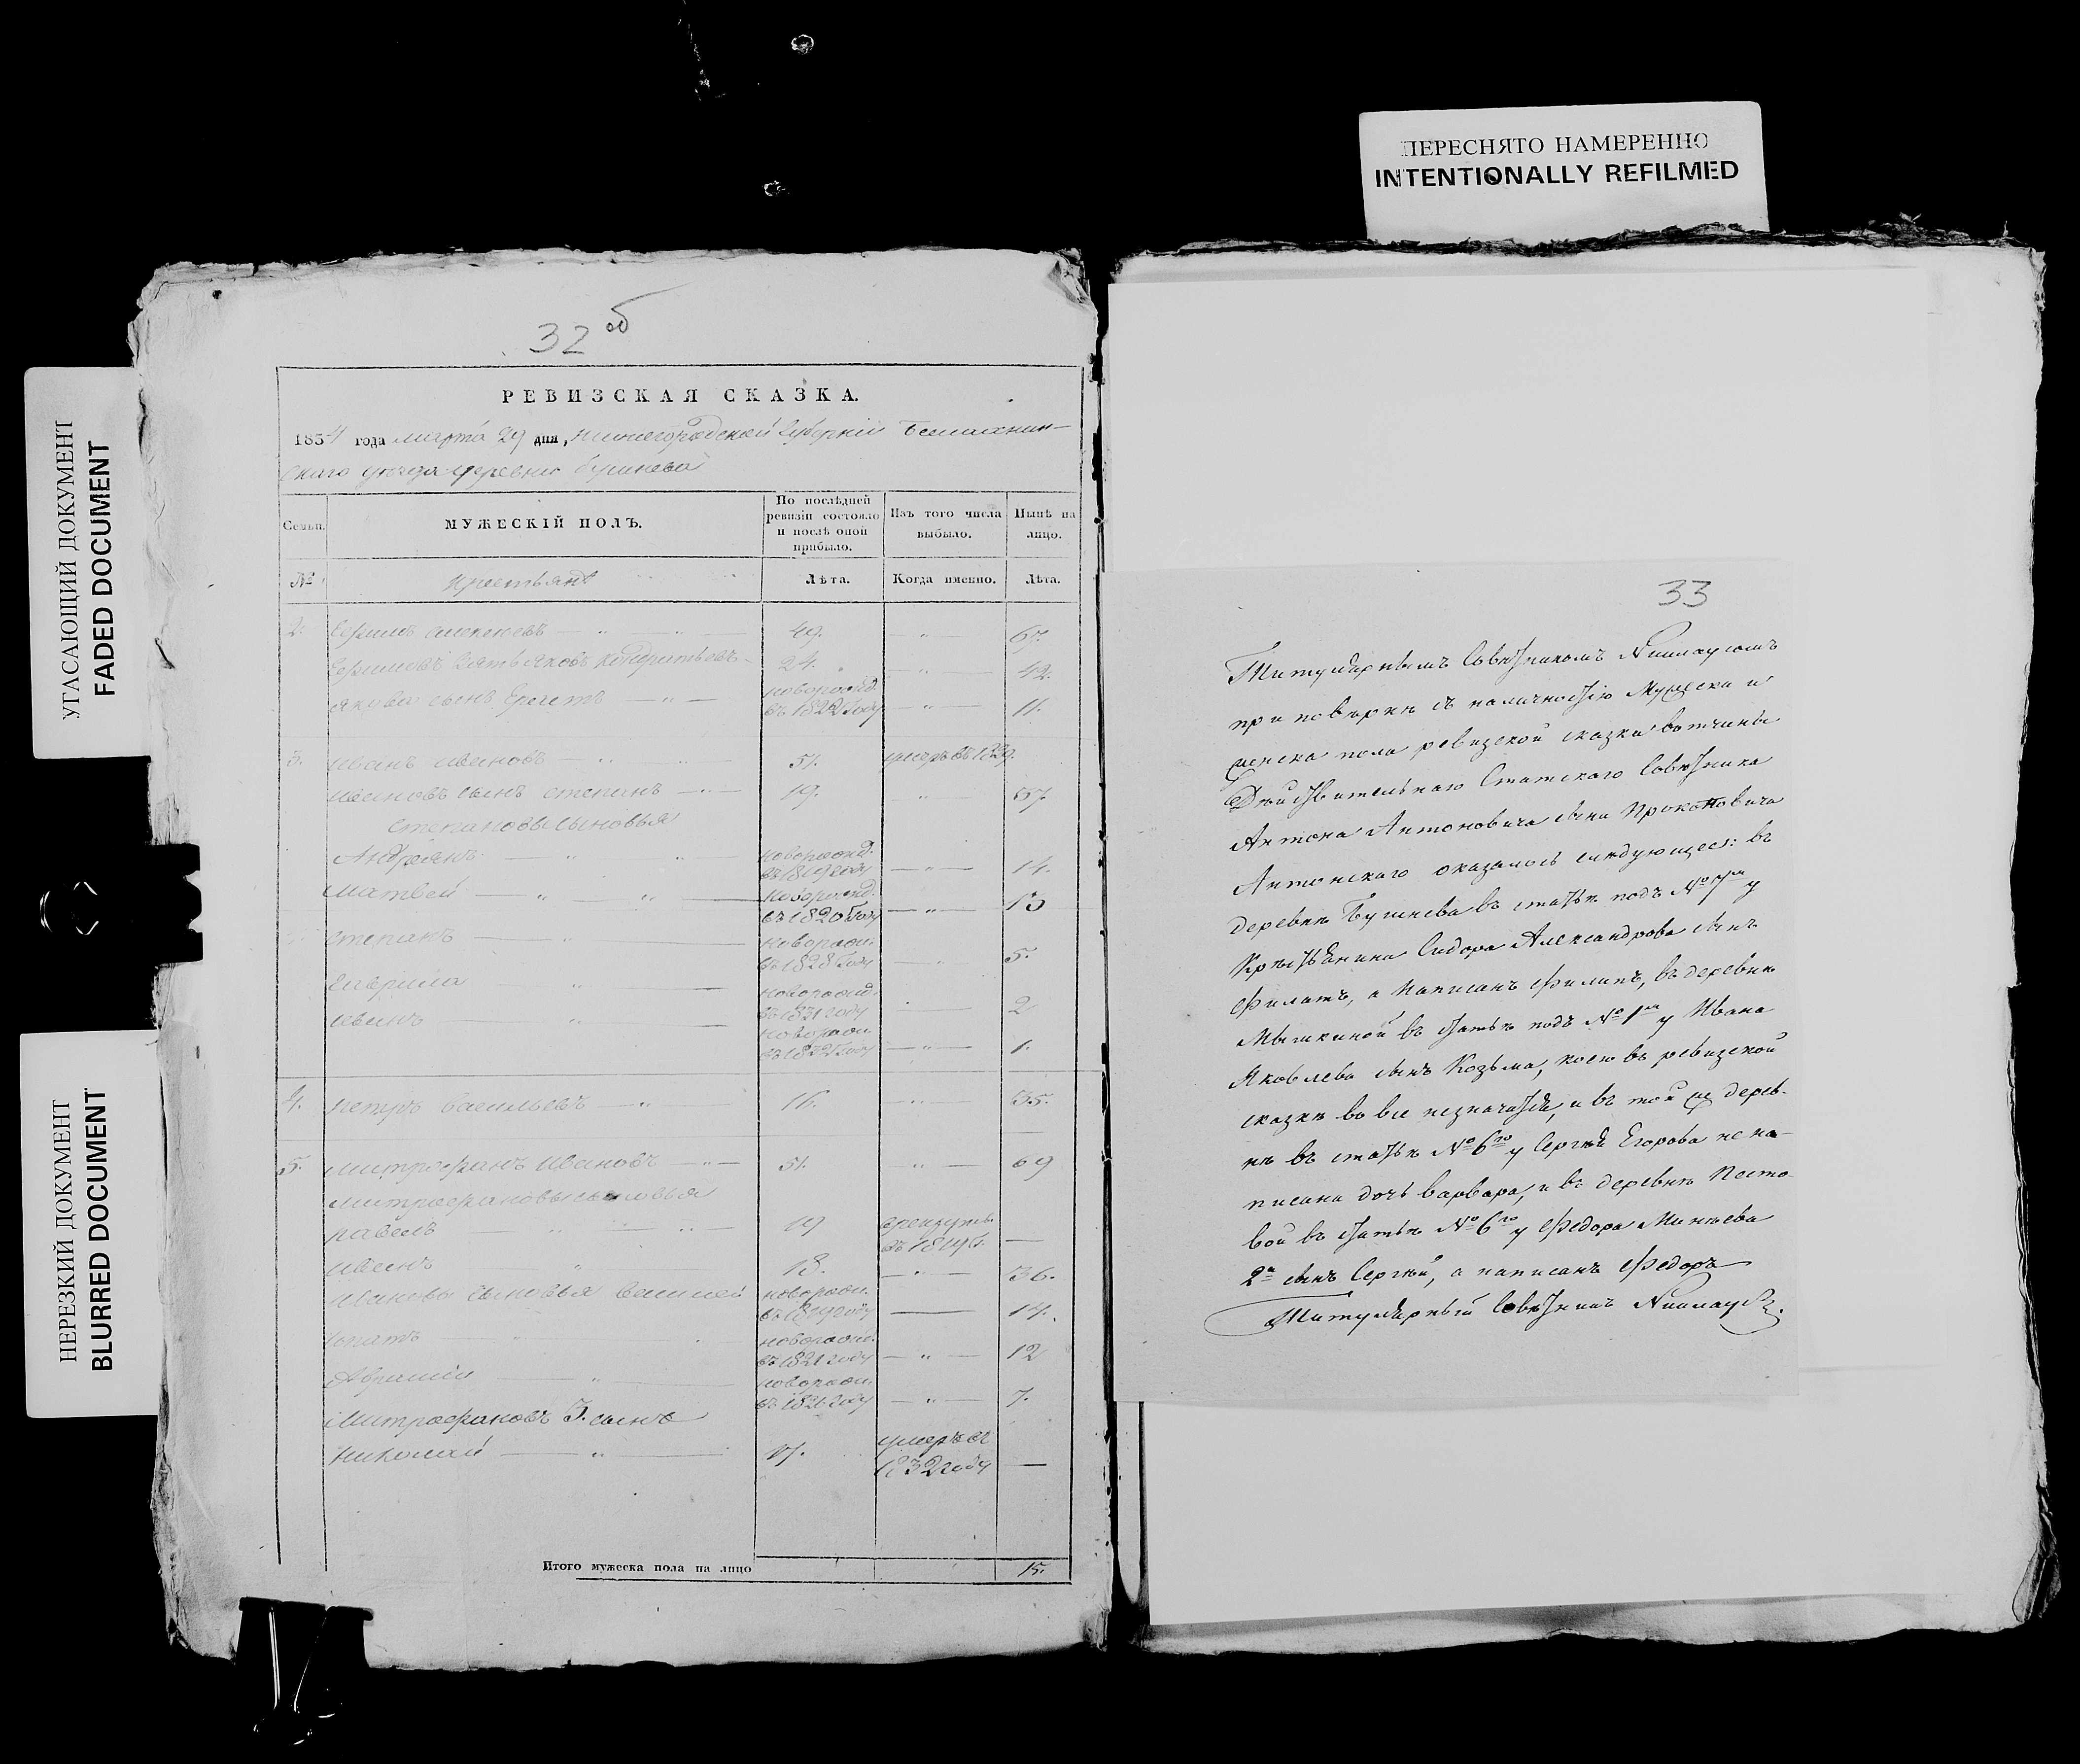 ПЕРЕСНЯТО НАМЕРЕННО
INTENTIONALLY REFILMED
УГАСАЮЩИЙ ДОКУМЕНТ
FADED DOCUMENT
НЕРЕЗКИЙ ДОКУМЕНТ
BLURRED DOCUMENT
32 об
РЕВИЗСКАЯ СКАЗКА.
1834 года марта 29 дня, Нижегородской губерніи
скаго уезда деревни Бушнева
Семьи. МУЖЕСКІЙ ПОЛЪ. По послѣдней ревизіи состояло и послѣ оной прибыло. Изъ того числа выбыло. Нынѣ на лицо.
№ Крестьянъ Лѣта. Когда именно. Лѣта.
2. Ефимъ 49. — " — 67.
Ефимовъ зять Яковъ Кондратьевъ 24. — " — 42.
Якова сынъ новорожд. въ 1822 году — " — 11.
3. Иванъ Ивановъ 51. умеръ въ 1829.
Ивановъ сынъ Степанъ 19. " 37.
Степановы сыновья
Андреянъ новорожд. въ 1819 году — " — 14.
Матвей новорожд. въ 1820 году — " — 13
Степанъ новорожд. въ 1828 году 5.
Гаврила новорожд. въ 1831 году 2
Иванъ новорожд. въ 1832 году — " — 1.
4. Петръ Васильевъ 16. 35.
5. Митрофанъ Ивановъ 51. " — 69
Митрофановы сыновья
Павелъ 19 въ 1819 г. —
Иванъ 18. 36.
Ивановы сыновья Василей новорожд. въ 1819 году — 14.
Игнатъ новорожд. въ 1821 году — " — 12
новорожд. въ 1826 году — " — 7.
Митрофановъ 3. сынъ
Николай 17. умеръ въ 1832 году —
Итого мужеска пола на лицо 15.
33
Титулярнымъ Совѣтникомъ
при повѣрке съ наличностію Мужеска и
женска пола ревизской сказки вотчины
Дѣйствительнаго Статскаго Совѣтника
Антона Антоновича сына Прокоповича
Антонскаго оказалось следующее: въ
деревнѣ Бушнева въ статьѣ подъ № 7м у
Крестьянина Сидора Александрова сынъ
Филатъ, а написанъ Филипъ, въ деревне
Мышкиной въ статьѣ подъ № 1м у Ивана
Яковлева сынъ Козьма, коего въ ревизской
сказкѣ вовсе незначится, и въ той же дерев-
нѣ въ статьѣ № 6го у Сергѣя Егорова не на-
писана дочь Варвара, и въ деревнѣ Песто-
вой въ статьѣ № 6го у Федора Минѣева
2й сынъ Сергѣй, а написанъ Федоръ
Титулярный Совѣтникъ